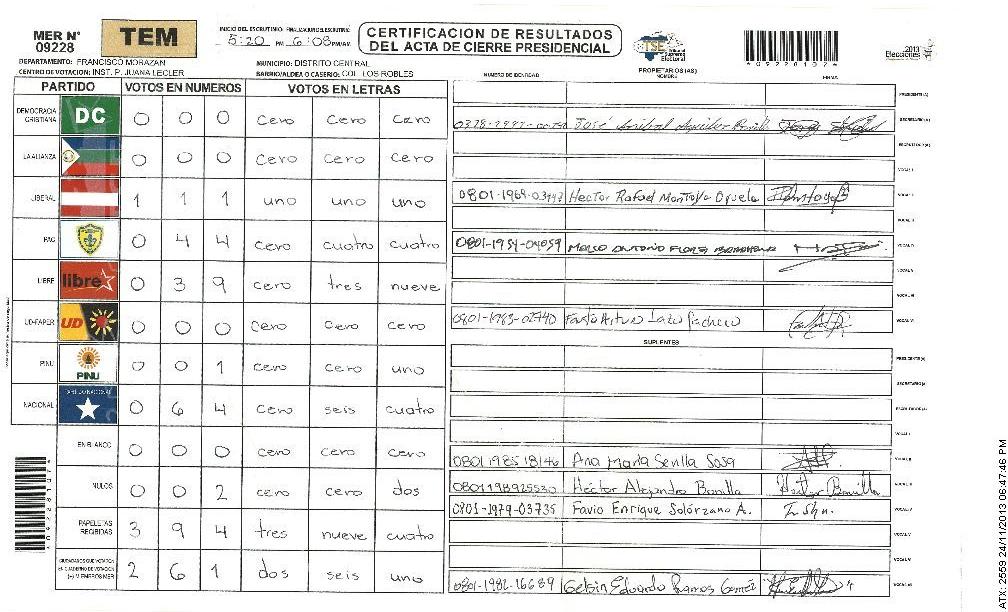 MER Nº
09228
TEM
INICIO DEL ESCRUTINIO FINALIZACION DEL ESCRUTINIO
5:20 PM 6:08 PM/AM
CERTIFICACION DE RESULTADOS
DEL ACTA DE CIERRE PRESIDENCIAL
TSE Tribunal Supremo Electoral
Elecciones 2013
DEPARTAMENTO: FRANCISCO MORAZAN
MUNICIPIO: DISTRITO CENTRAL
CENTRO DE VOTACION: INST. P. JUANA LECLER
BARRIO/ALDEA O CASERIO: COL. LOS ROBLES
NUMERO DE IDENTIDAD
PROPIETARIOS (AS)
NOMBRE
FIRMA
PARTIDO VOTOS EN NUMEROS VOTOS EN LETRAS
PRESIDENTE (A)
DEMOCRACIA CRISTIANA DC 0 0 0 cero cero cero
José Anibal Aguilar Bonilla SECRETARIO (A)
ESCRUTADOR (A)
LA ALIANZA 0 0 0 cero cero cero
VOCAL I
LIBERAL 1 1 1 uno uno uno
Hector Rafael Montoya VOCAL II
VOCAL III
PAC 0 4 4 cero cuatro cuatro
0801-1954-04059 Marco Antonio Flores VOCAL IV
VOCAL V
LIBRE libre 0 3 9 cero tres nueve
UD-FAPER UD 0 0 0 cero cero cero
0801-1963-02740 Fausto Arturo Lazo Pacheco
SUPLENTES
PINU PINU 0 0 1 cero cero uno
PRESIDENTE (A)
SECRETARIO (A)
NACIONAL PARTIDO NACIONAL 0 6 4 cero seis cuatro
ESCRUTADOR (A)
VOCAL I
EN BLANCO 0 0 0 cero cero cero
0801 1985 18146 Ana Maria Sevilla Sosa VOCAL II
NULOS 0 0 2 cero cero dos
0801198925530 Héctor Alejandro Bonilla Hector Bonilla VOCAL III
0801-1979-03735 Favio Enrique Solórzano A. VOCAL IV
PAPELETAS RECIBIDAS 3 9 4 tres nueve cuatro
VOCAL V
CIUDADANOS QUE VOTARON EN CUADERNO DE VOTACION (+) MIEMBROS MER 2 6 1 dos seis uno
0801-1982-16689 Gelsin Eduardo Ramos Gomez
ATX-2559 24/11/2013 06:47:46 PM